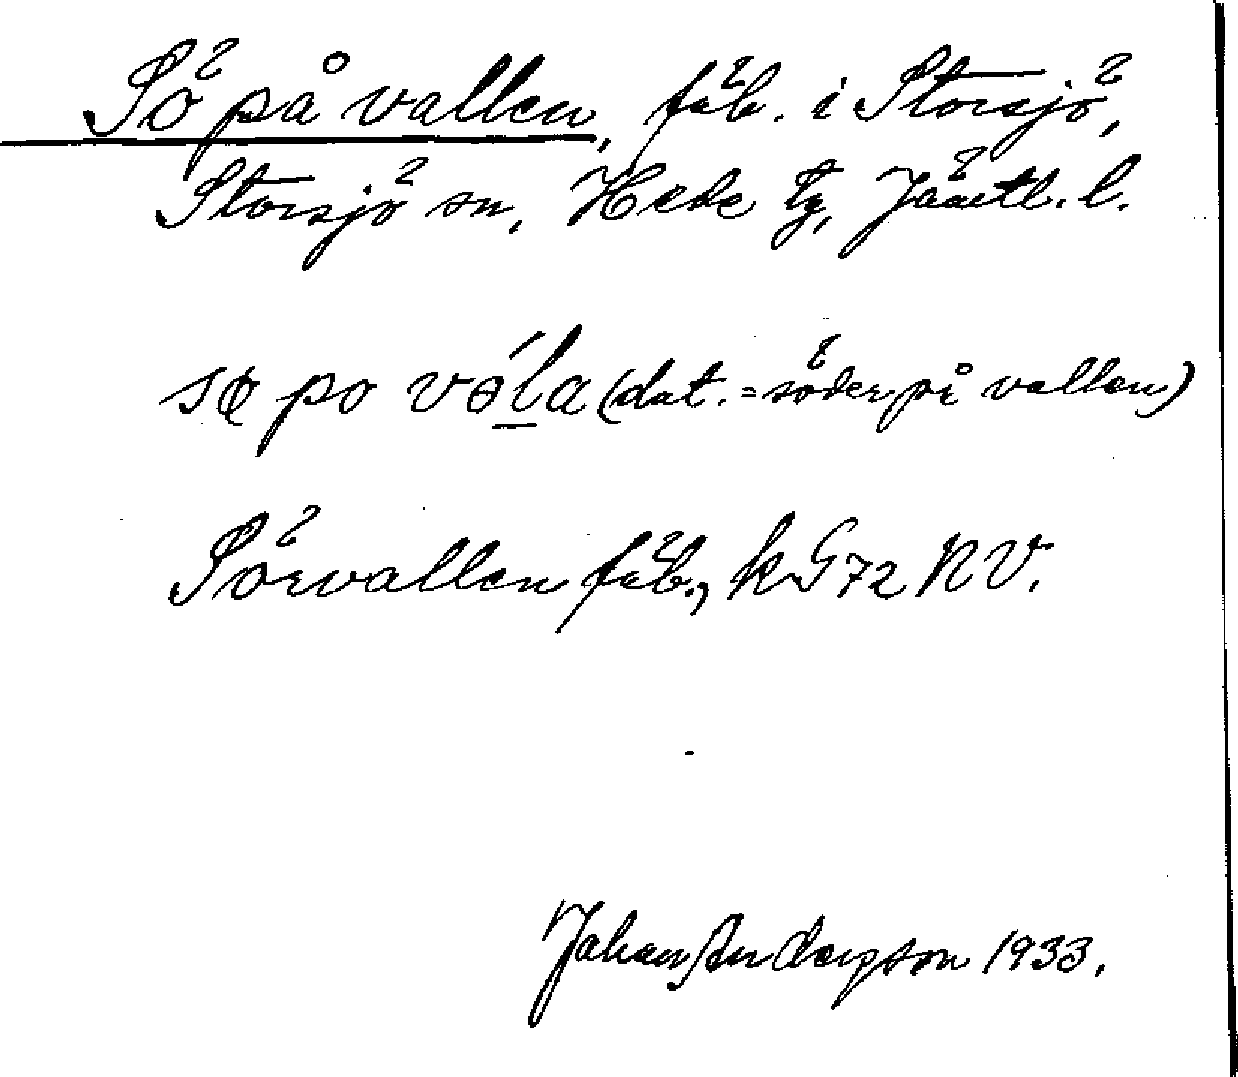 Sö på vallen, fäb. i Storsjö,
Storsjö sn, Hede tg, Jämtl. l.
sø po vəĺa (dat. = söder på vallen)
Sörvallen fäb., kG72 NV.
Johan Anderson 1933.